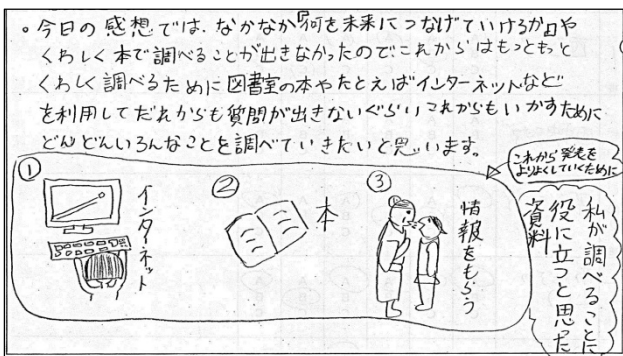 。今日の感想では、なかなか『何を未来につなげていけるか』や
くわしく本で調べることが出きなかったのでこれからはもっともっと
くわしく調べるために図書室の本やたとえばインターネットなど
を利用してだれからも質問が出きないぐらいこれからもいかすために
どんどんいろんなことを調べていきたいと思います。
これから発表を
よりよくしていくために
私が調べることに
役に立つと思った
資料
①
インターネット
②
本
③
情報をもらう